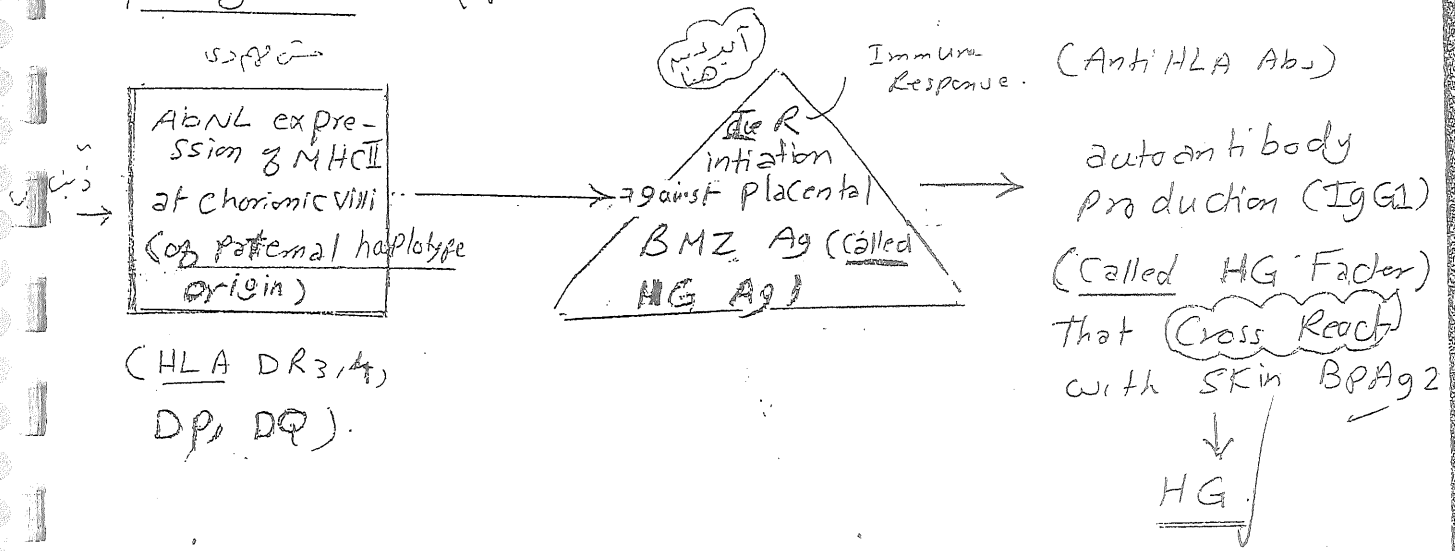 AbNL expre-
ssion of MHCII
at chorionic villi
(of paternal haplotype
origin)
(HLA DR3,4,
DP, DQ).
هنا
Immune
Response.
IR
intiation
against placental
BMZ Ag (called
HG Ag)
(Anti HLA Abs)
autoantibody
production (IgG1)
(Called HG Factor)
That Cross React
with skin BPAg2
HG